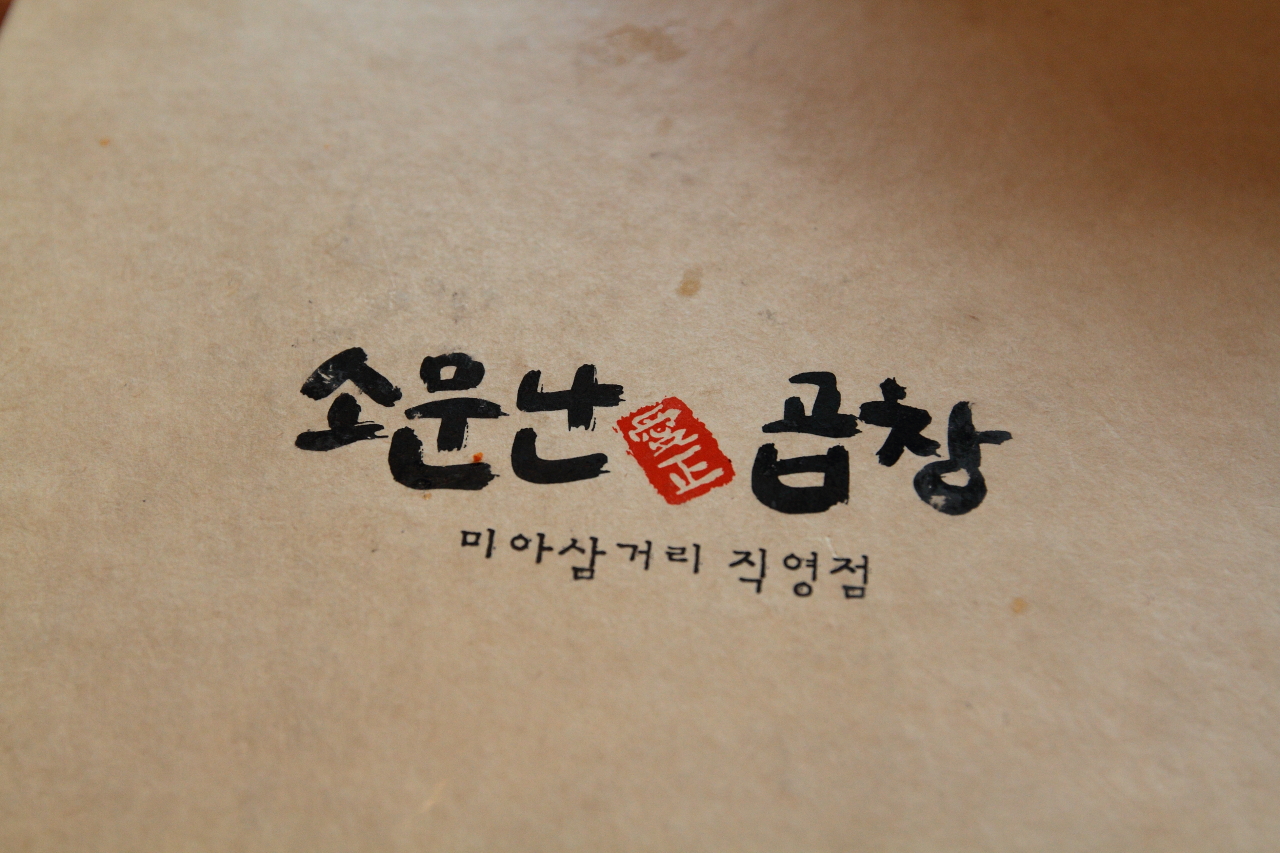 소문난 곱창
미아삼거리 직영점